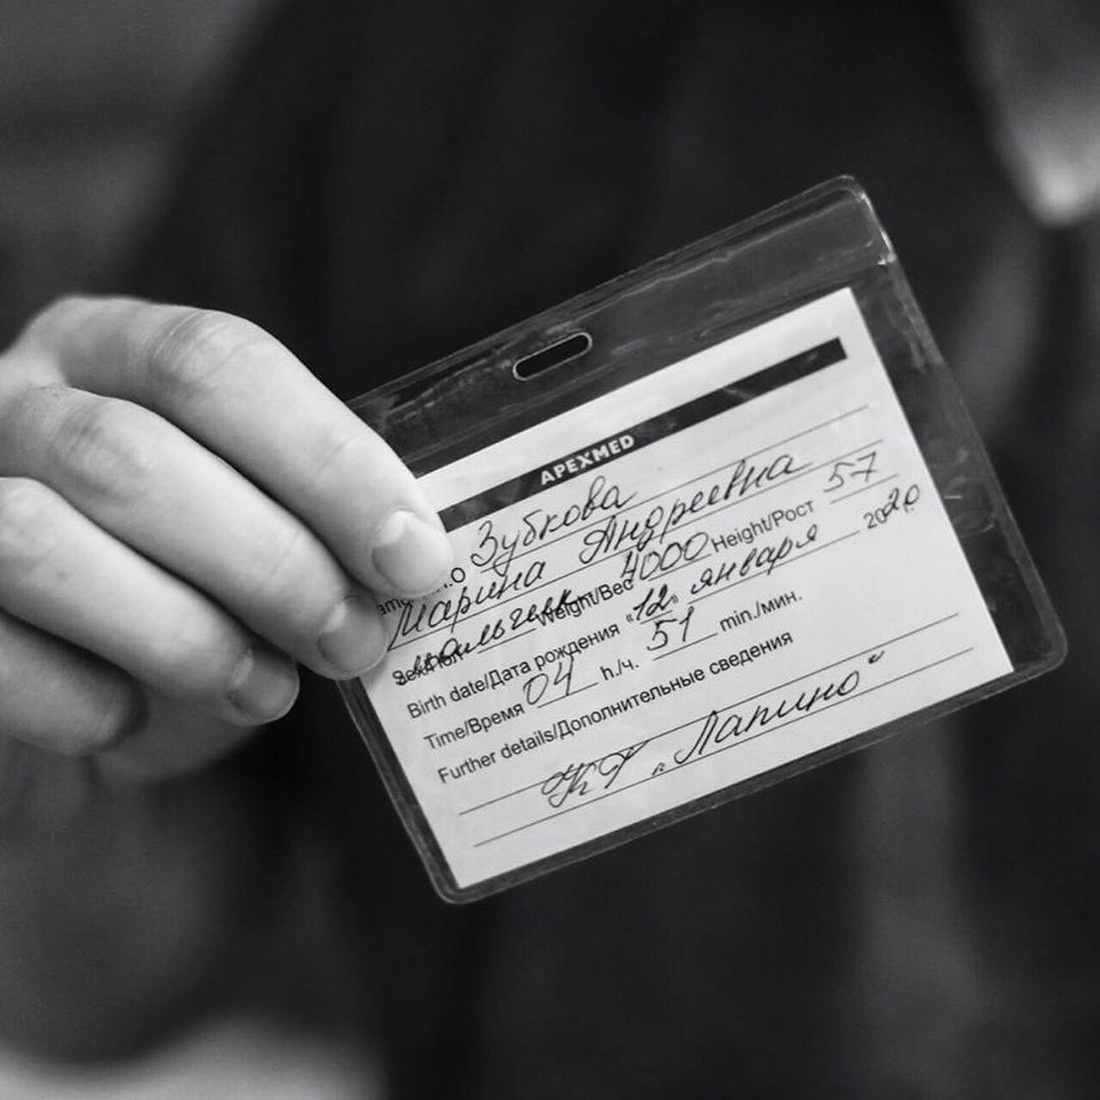 APEXMED
Зубкова
Марина Андреевна
мальчик Weight/Вес 4000 Height/Рост 57
Birth date/Дата рождения «12» января 2020 г.
Time/Время 04 h/ч. 51 min./мин.
Further details/Дополнительные сведения
КГ "Лапино"